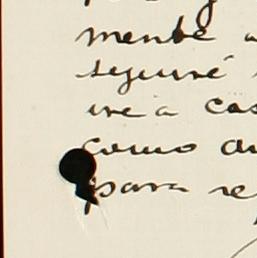 mente a
seguiré
iré a cas
como au
para re